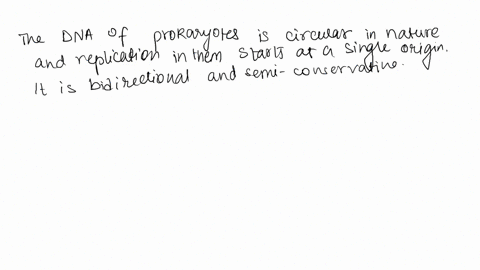 The DNA of prokaryotes is circular in nature
and replication in them starts at a single origin.
It is bidirectional and semi-conservative.